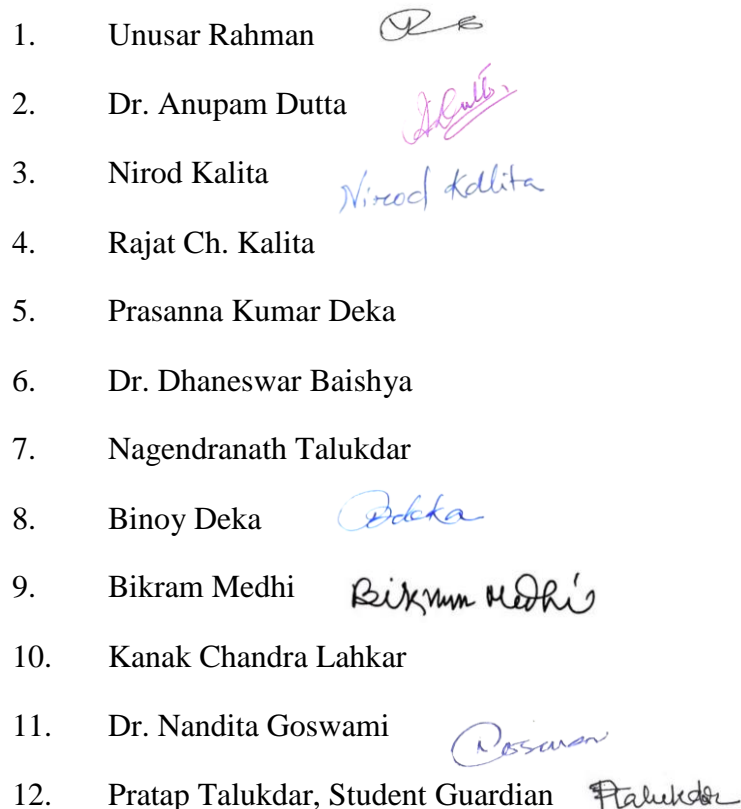 1. Unusar Rahman
2. Dr. Anupam Dutta ADutta
3. Nirod Kalita Nirod Kalita
4. Rajat Ch. Kalita
5. Prasanna Kumar Deka
6. Dr. Dhaneswar Baishya
7. Nagendranath Talukdar
8. Binoy Deka Bdeka
9. Bikram Medhi Bikram Medhi
10. Kanak Chandra Lahkar
11. Dr. Nandita Goswami
12. Pratap Talukdar, Student Guardian PTalukdar